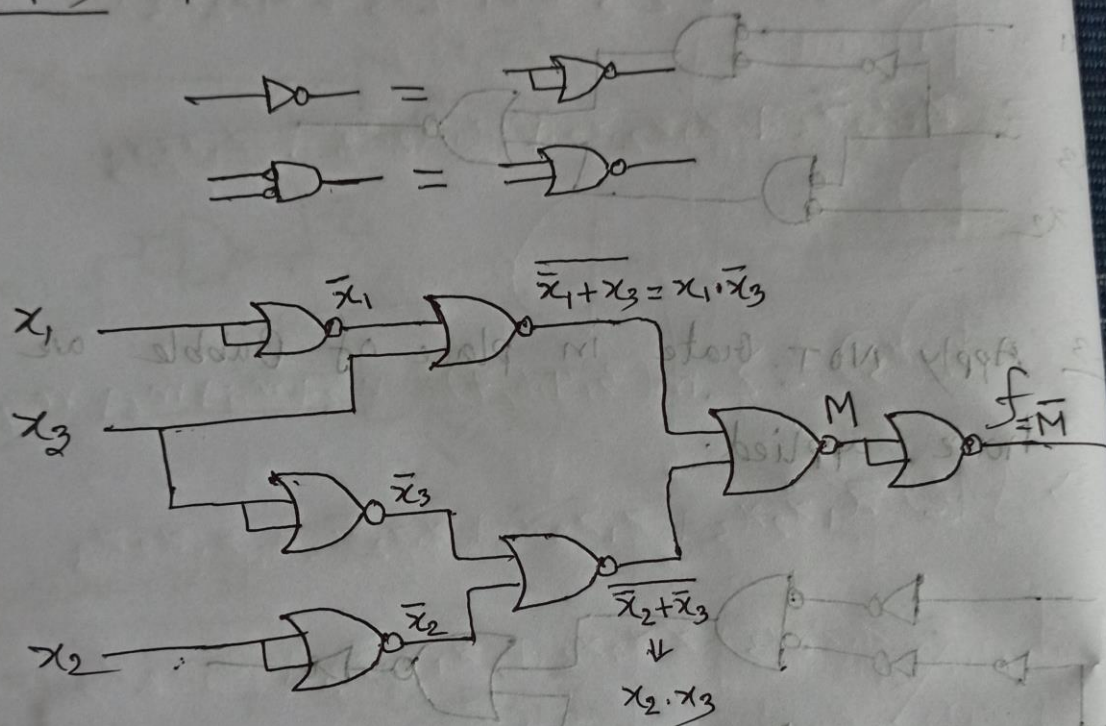 =
=
x₁
x̄₁
\overline{x̄₁+x₃} = x₁·x̄₃
x₃
M
f
=M̄
x̄₃
x̄₂
\overline{x̄₂+x̄₃}
⇓
x₂
x₂.x₃